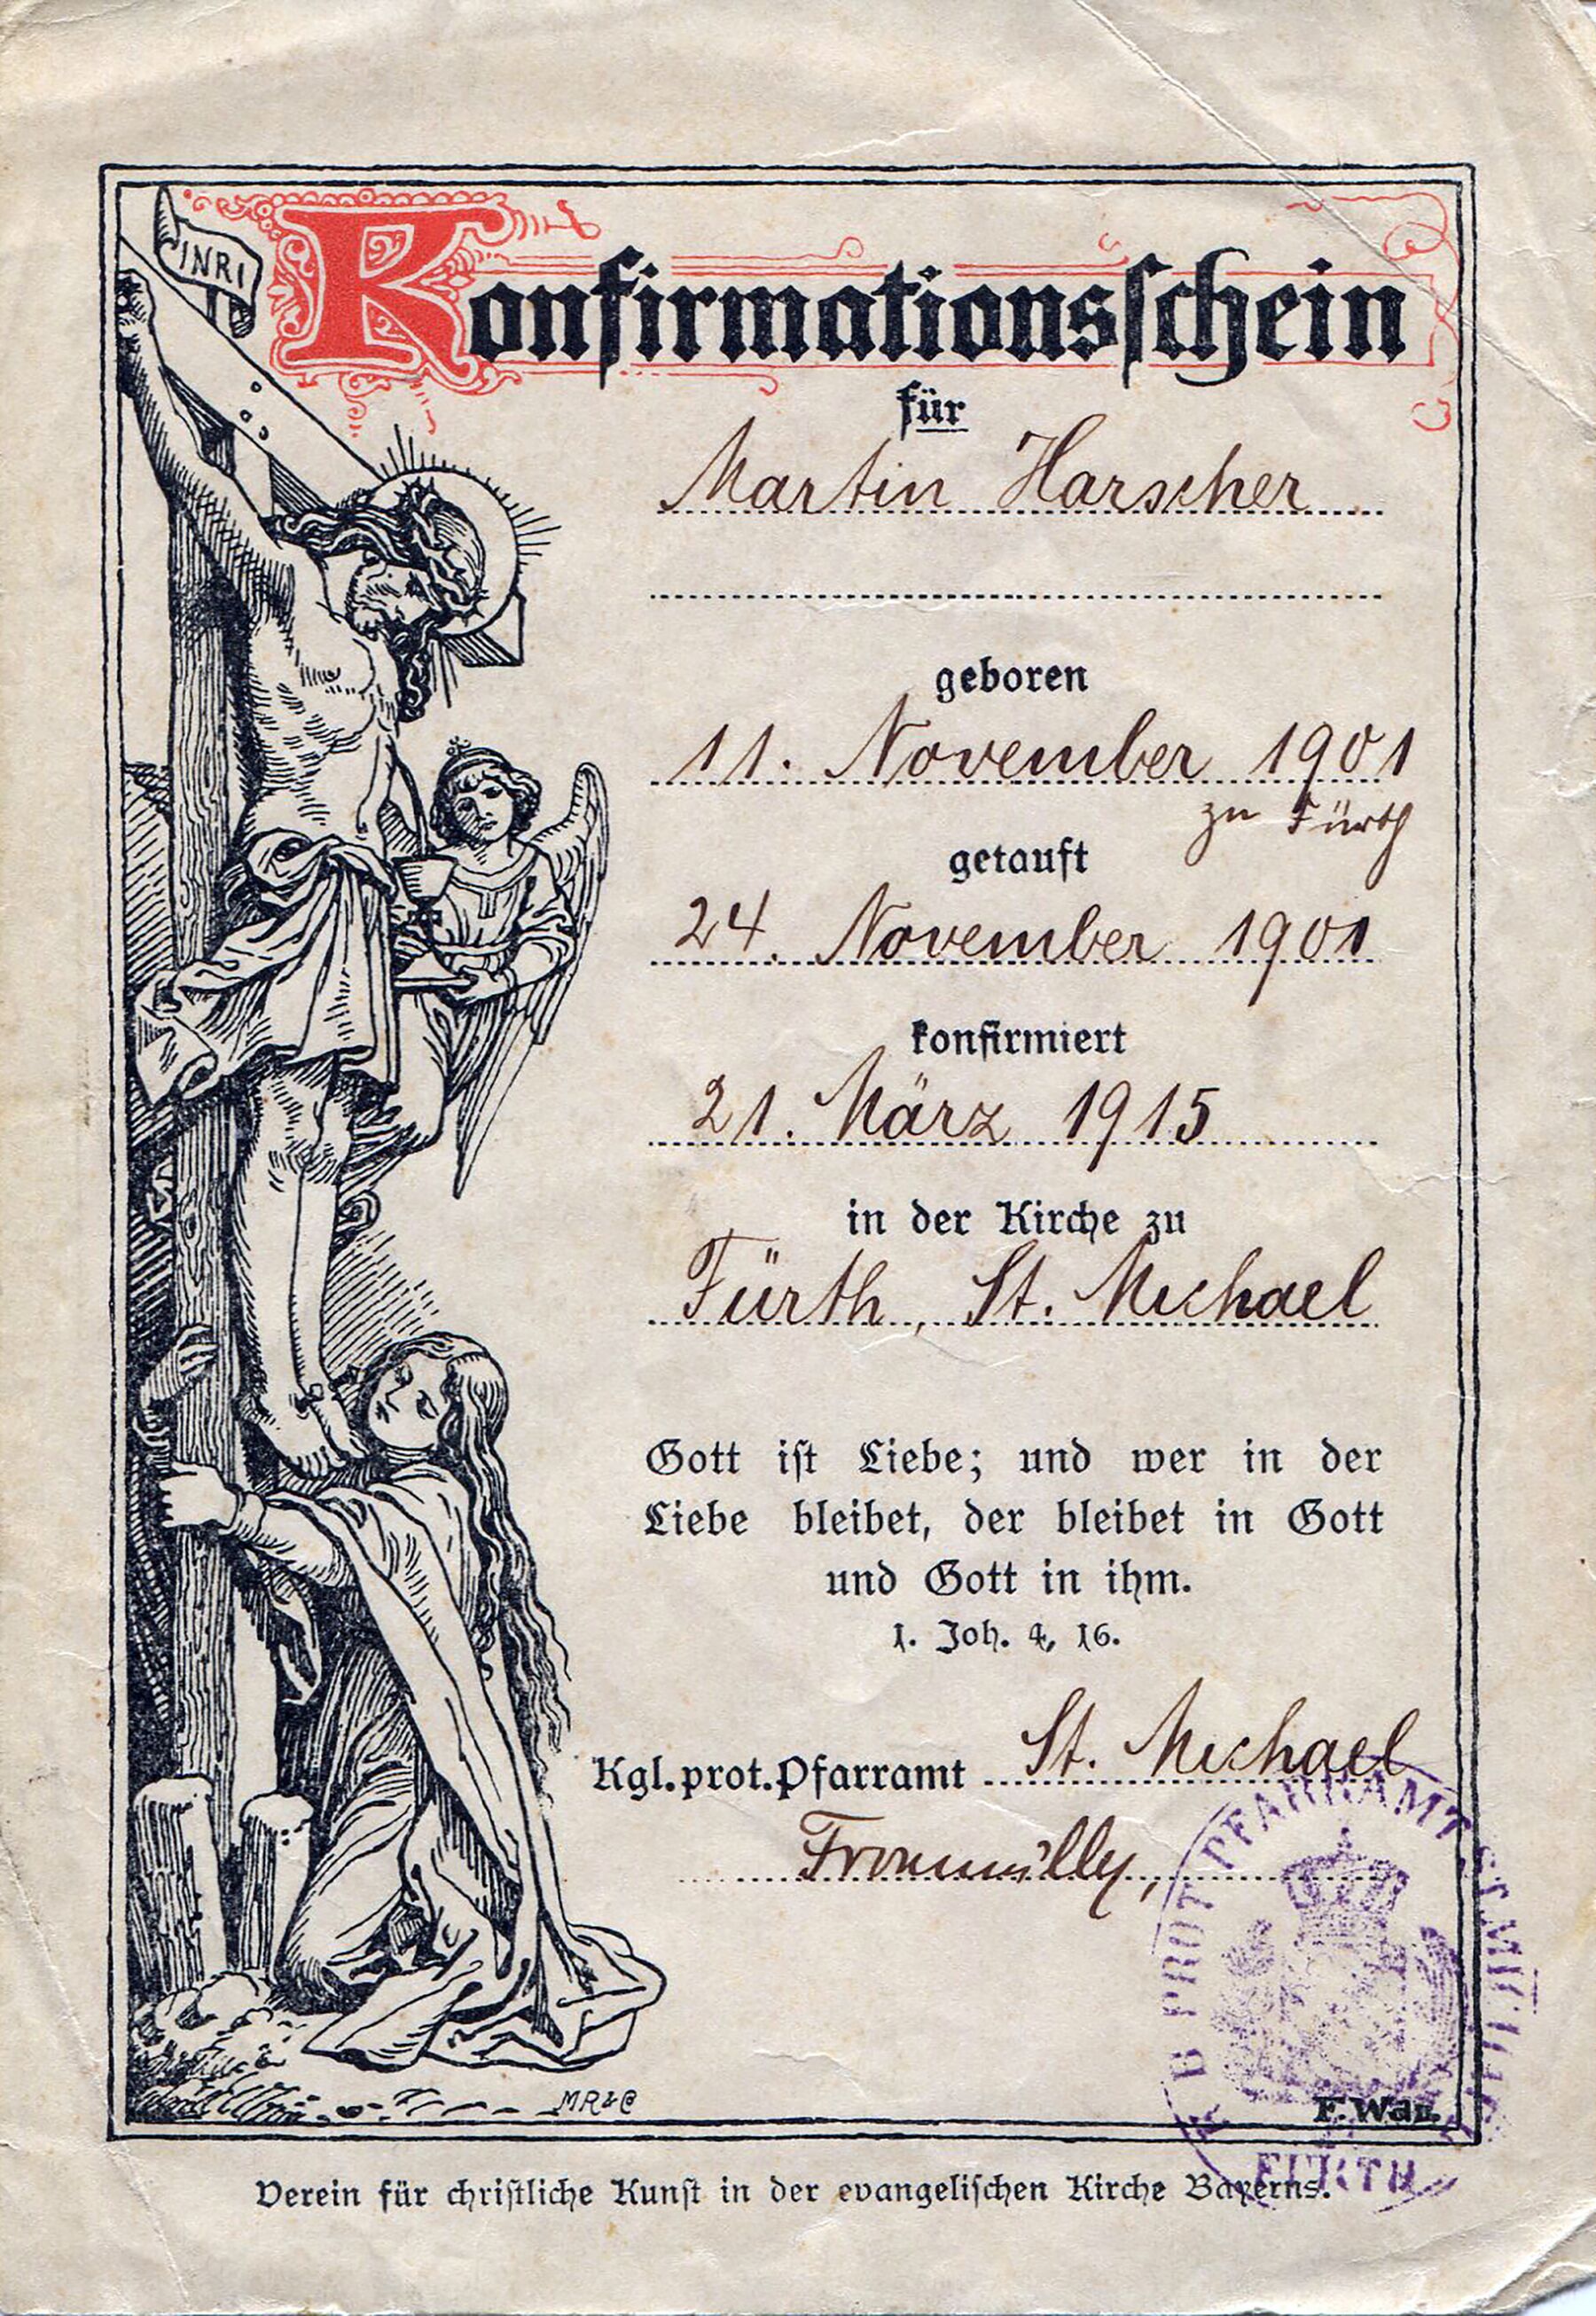 INRI
Konfirmationsschein
für
Martin Harscher
geboren
11. November 1901
zu Fürth
getauft
24. November 1901
konfirmiert
21. März 1915
in der Kirche zu
Fürth, St. Michael
Gott ist Liebe; und wer in der
Liebe bleibet, der bleibet in Gott
und Gott in ihm.
1. Joh. 4, 16.
Kgl. prot. Pfarramt St. Michael
K B PROT PFARRAMT ST. MICHAEL
FÜRTH
MR&C
Verein für christliche Kunst in der evangelischen Kirche Bayerns.